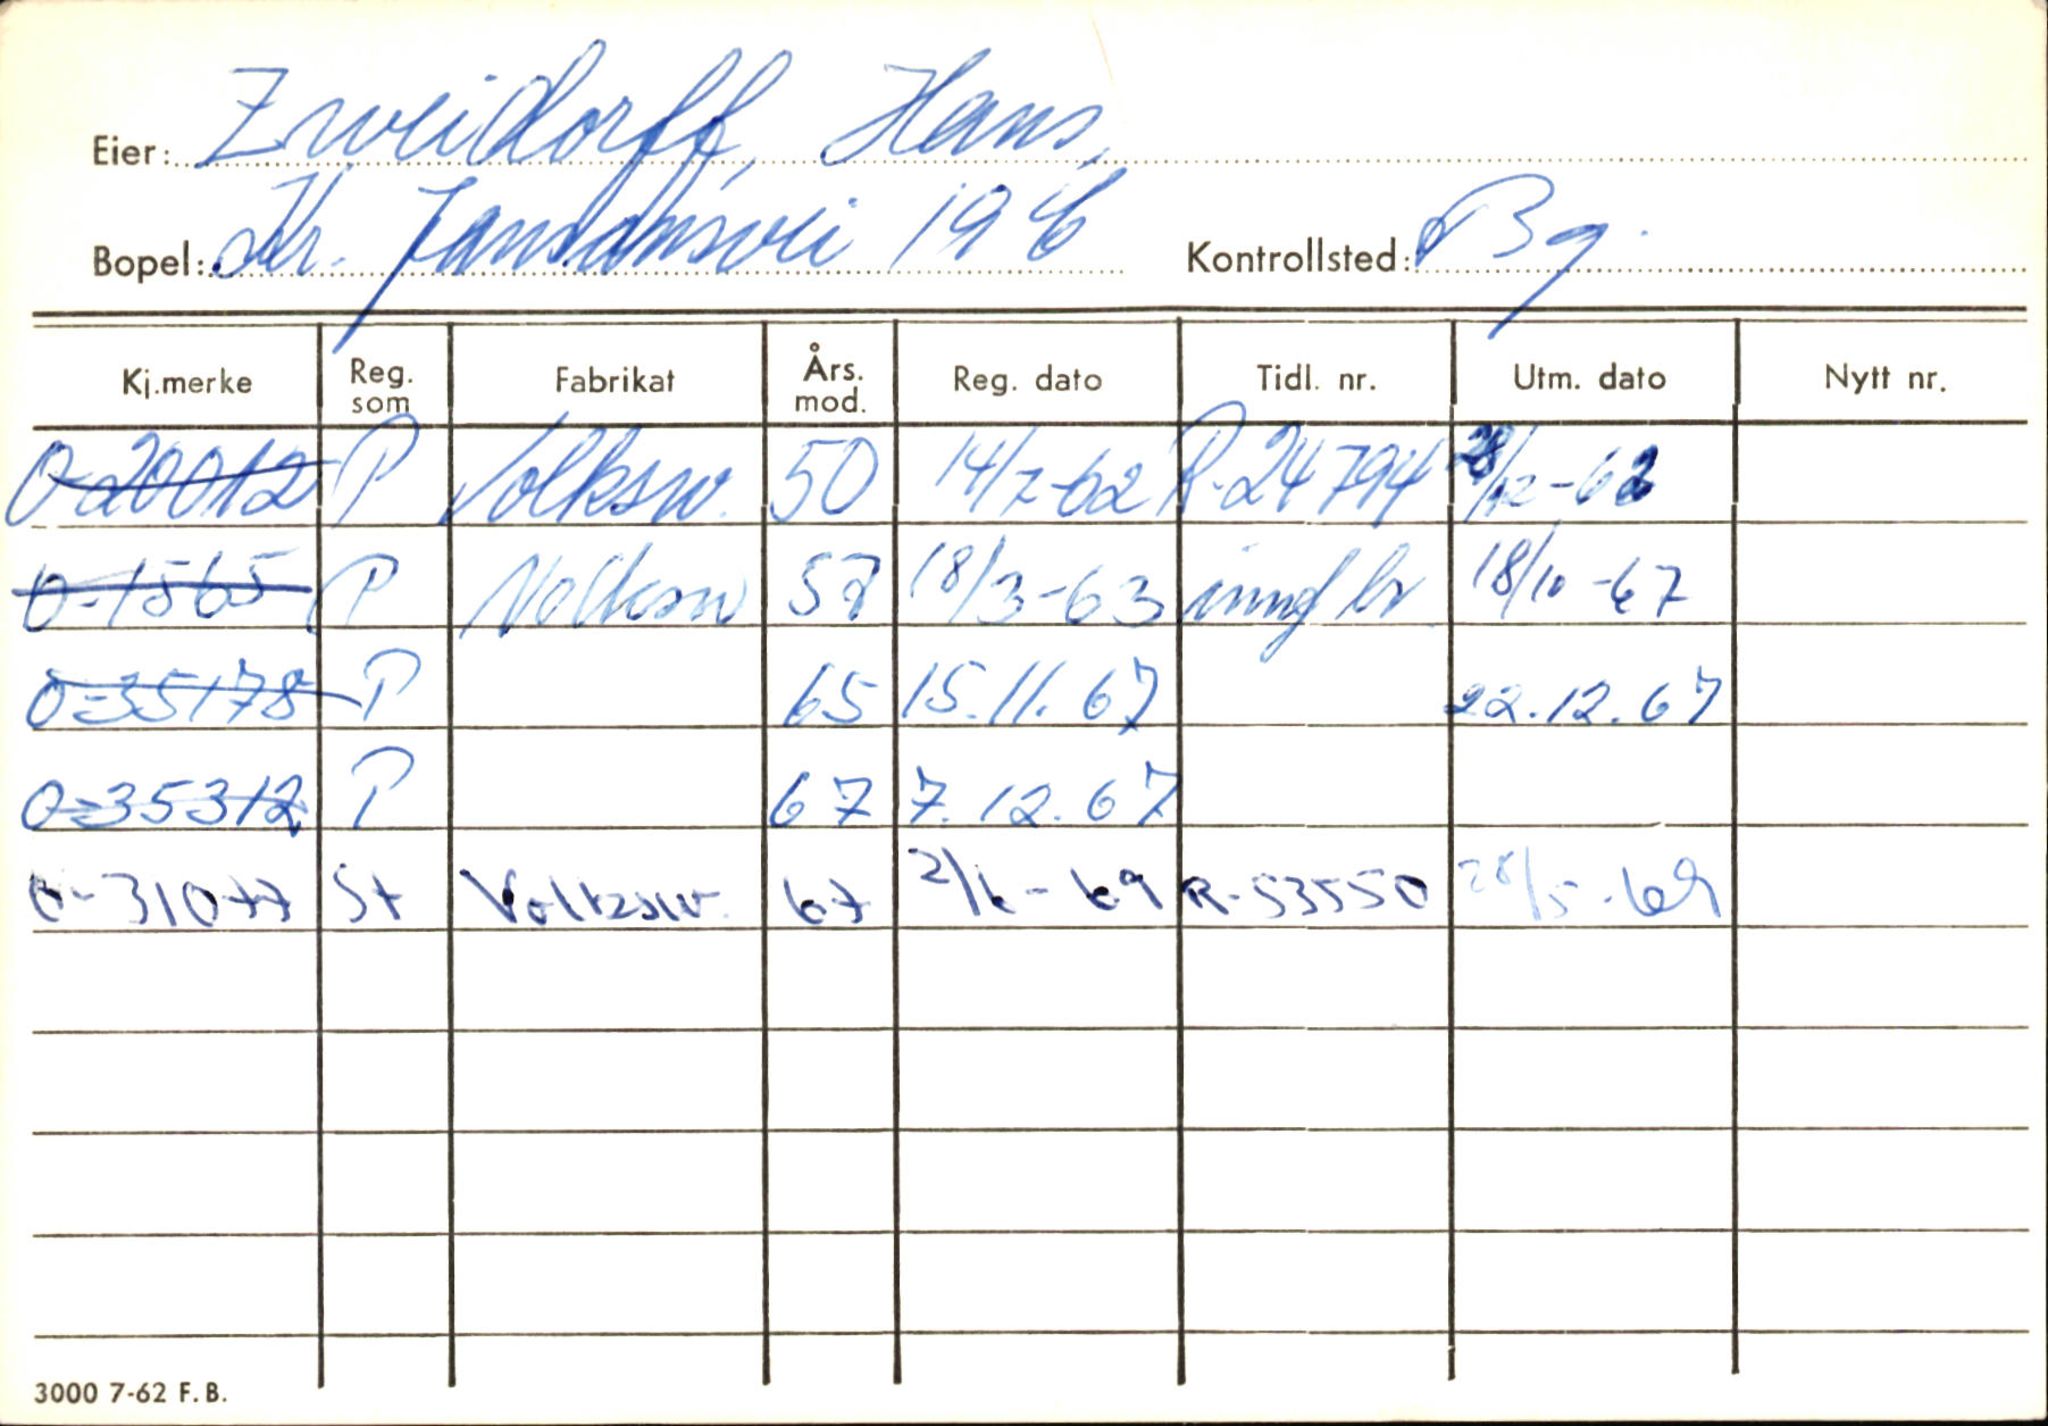 Eier: Zweidorff, Hans,
Bopel: Kr. Jansonsvei 19 b Kontrollsted: Bg.
Kj.merke Reg. som Fabrikat Års. mod. Reg. dato Tidl. nr. Utm. dato Nytt nr.
O-20012 P Volksw. 50 14/7-62 R-24794 28/12-62
O-1565 P Volksw 57 18/3-63 inng br. 18/10-67
O-35178 P 65 15.11.67 22.12.67
O-35312 P 67 7.12.67
O-31077 St Volksw. 67 2/6-69 R-53550 28/5-69
3000 7-62 F.B.